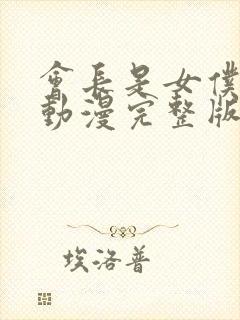 會長是女僕
動漫完整版
埃洛普